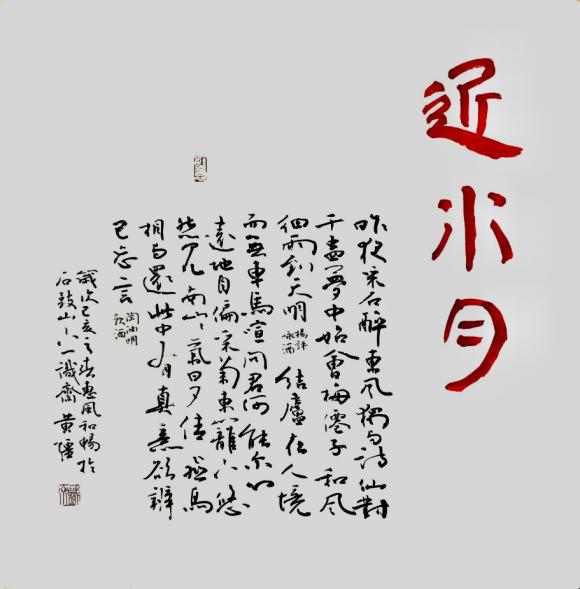 近水月
昨夜采石醉東風獨与詩仙對
千盞夢中始會梅子和風
細雨到天明
詠酒
結廬在人境
而無車馬喧問君何能尔心
遠地自偏采菊東籬下悠
然見南山山氣日夕佳飛鳥
相与還此中有真意欲辨
已忘言
陶淵明
飲酒
歲次己亥之春惠風和暢於
石鼓山識齋黃疆